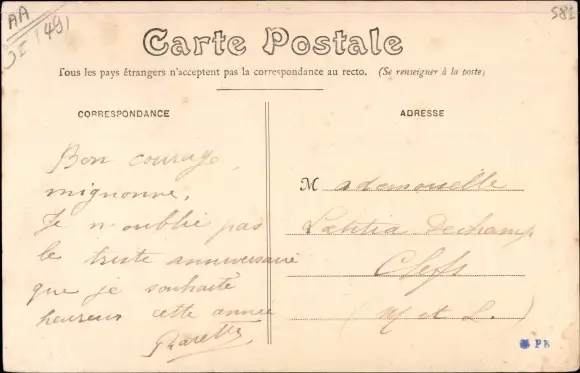 AA
(49)
581
Carte Postale
Tous les pays étrangers n'acceptent pas la correspondance au recto. (Se renseigner à la poste)
CORRESPONDANCE
ADRESSE
Bon courage,
mignonne.
Je n'oublie pas
le triste anniversaire
que je souhaite
heureux cette année
Mademoiselle
Laetitia Dechamp
Clefs
(M et L.)
PB